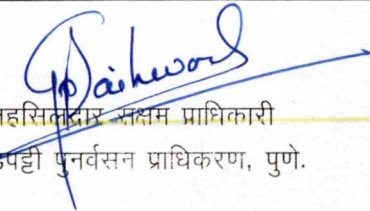 तहसिलदार सक्षम प्राधिकारी
पुनर्वसन प्राधिकरण, पुणे.